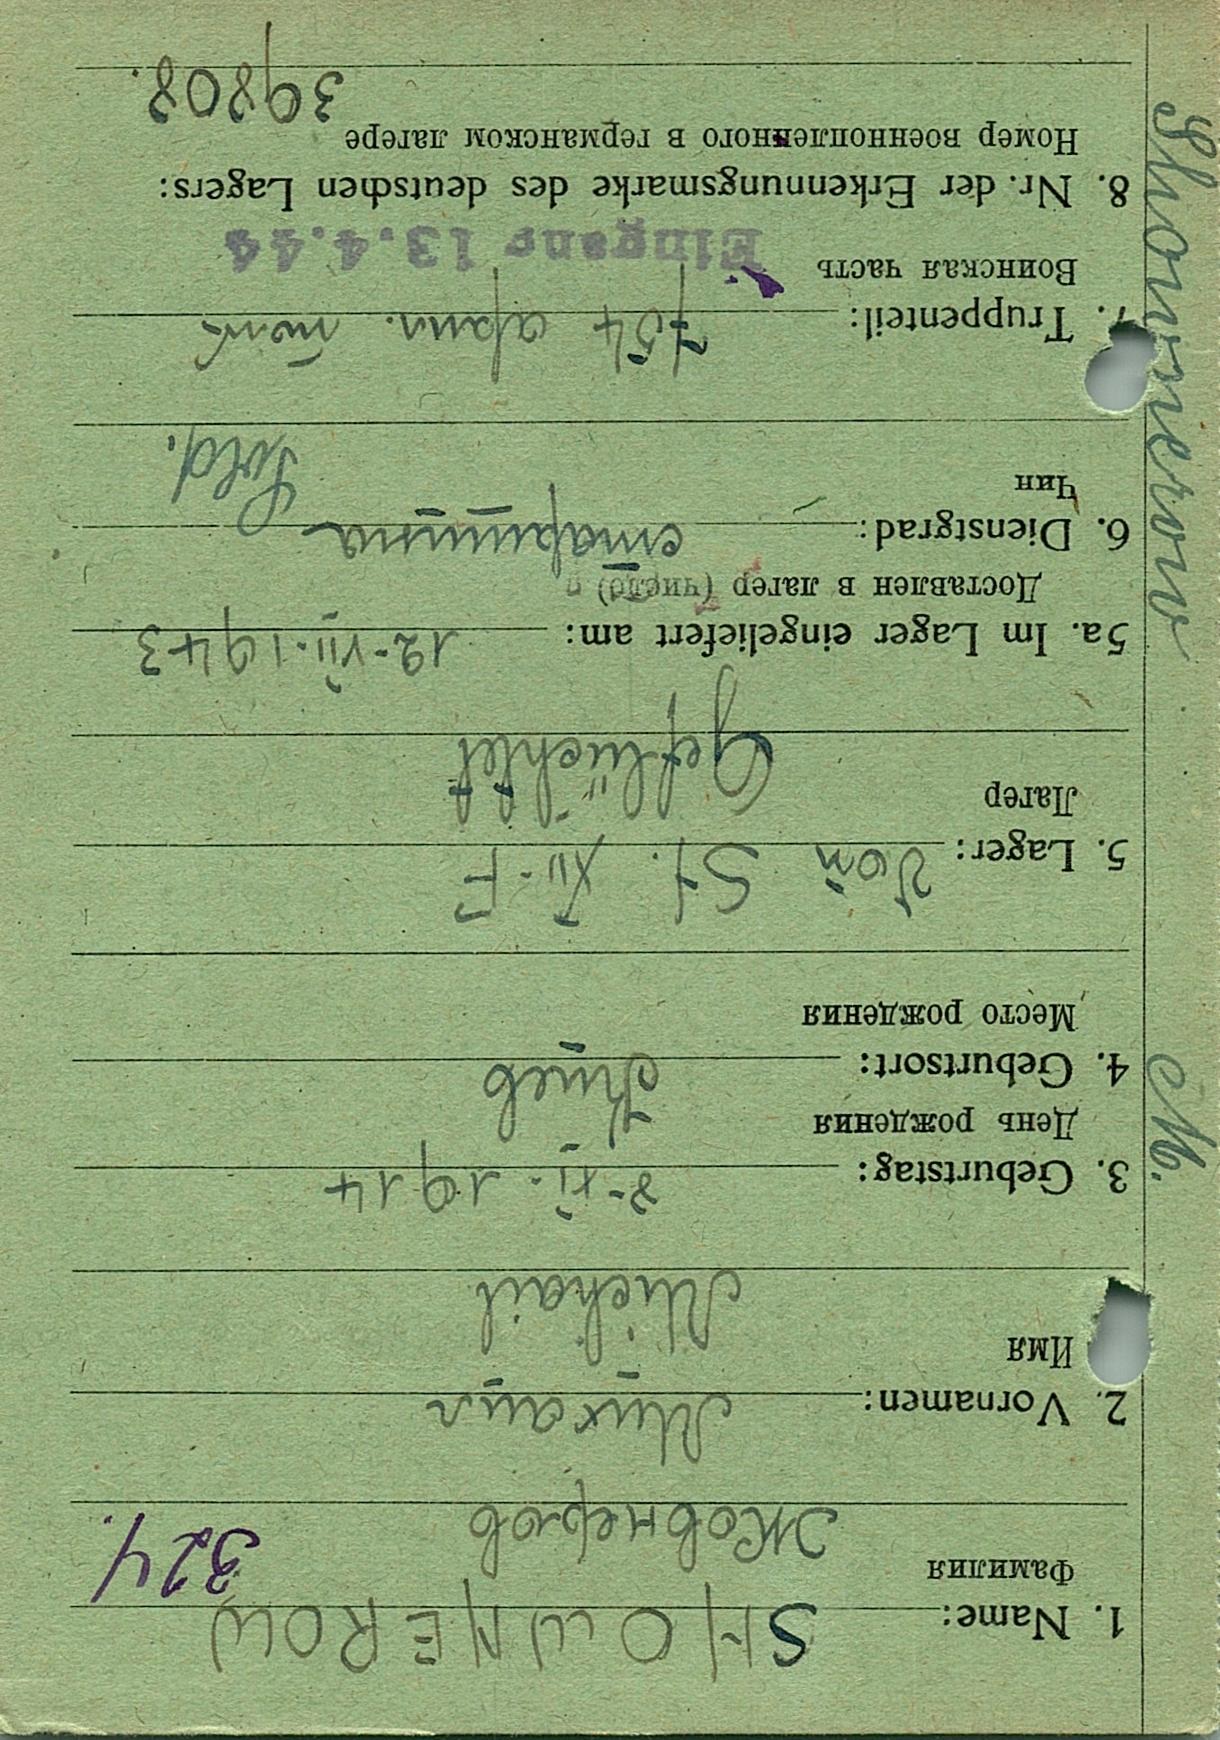 Shownerow M.
1. Name: SHOWNEROW
Фамилия
324.
Жовнеров
2. Vornamen: Михаил
Имя
Michail
3. Geburtstag: 8-XI-1914
День рождения
4. Geburtsort: Киев
Место рождения
5. Lager: Vom St. XII-F
Лагер
Geflüchtet
5a. Im Lager eingeliefert am: 12-VII-1943
Доставлен в лагер (число)
6. Dienstgrad: старшина
Чин
Sold.
7. Truppenteil: 754 артил. полк
Воинская часть
Eingang 13.4.44
8. Nr. der Erkennungsmarke des deutschen Lagers:
Номер военнопленного в германском лагере
39808.